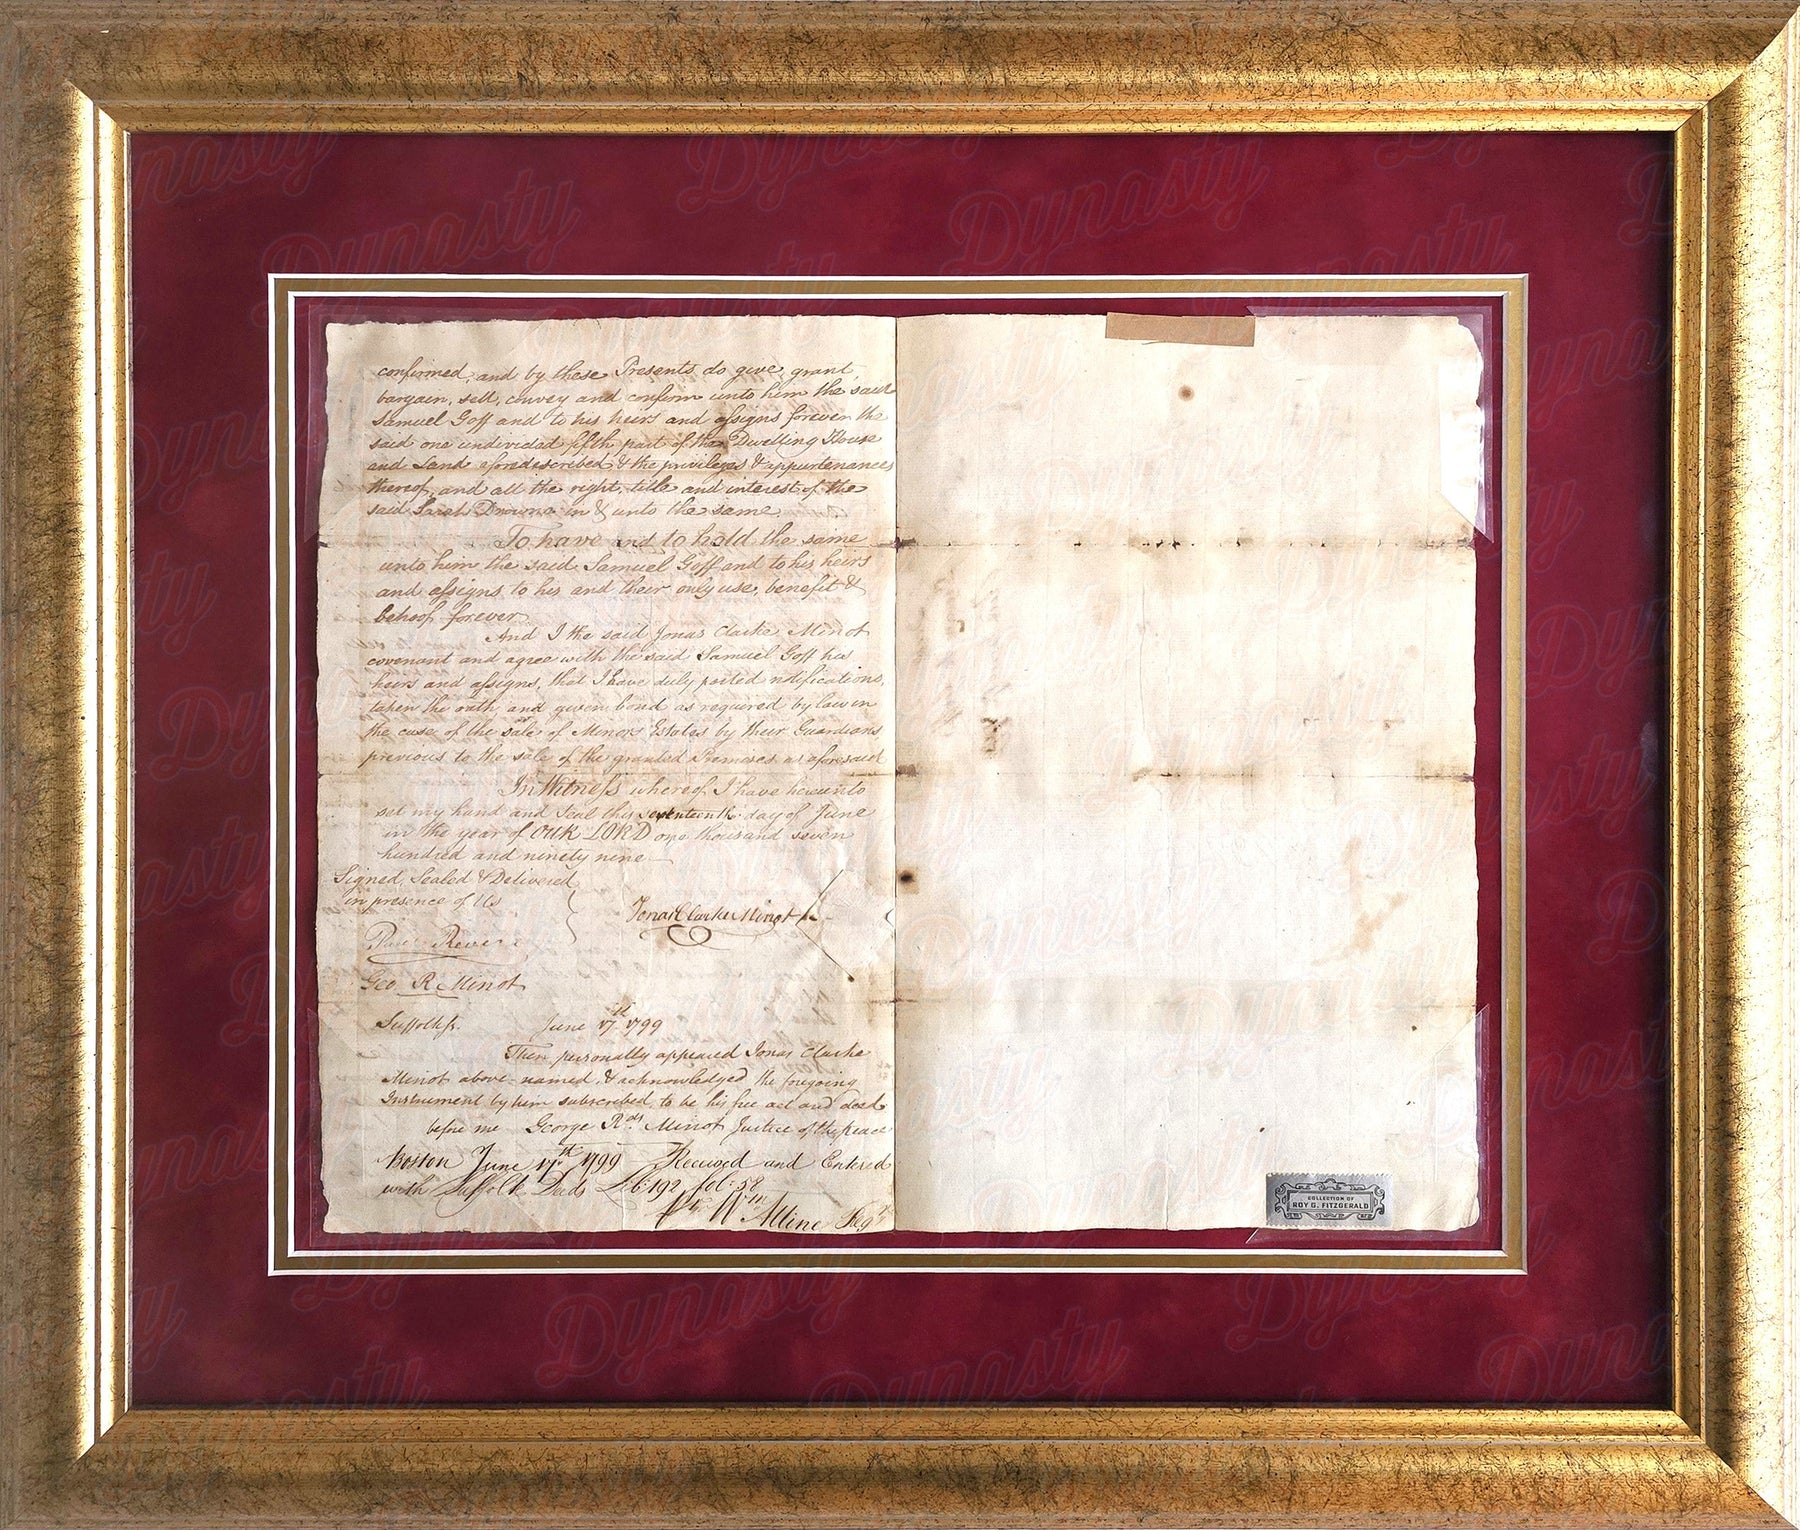 confirmed, and by these Presents do give, grant
bargain, sell, convey and confirm unto him the said
Samuel Goff and to his heirs and assigns forever the
said one undivided fifth part of the Dwelling House
and Land aforedescribed & the privileges & appurtenances
thereof, and all the right, title and interest of the
said Sarah Drowne in & unto the same.
To have and to hold the same
unto him the said Samuel Goff and to his heirs
and assigns to his and their only use, benefit &
behoof forever
And I the said Jonas Clarke Minot
covenant and agree with the said Samuel Goff his
heirs and assigns, that I have duly posted notifications,
taken the oath and given bond as required by law in
the case of the sale of Minors Estates by their Guardians
previous to the sale of the granted Premises as aforesaid
In Witness whereof I have hereunto
set my hand and Seal this seventeenth day of June
in the year of OUR LORD one thousand seven
hundred and ninety nine
Signed, Sealed & Delivered
in presence of Us
Jonas Clarke Minot
Paul Revere
Geo. R Minot
Suffolk ss. June 17th 1799
Then personally appeared Jonas Clarke
Minot above-named, & acknowledged the foregoing
Instrument by him subscribed, to be his free act and deed
before me George Rds Minot Justice of the peace
Boston June 17th 1799 Received and Entered
with Suffolk Deeds Lib: 192 fol: 58
Wm Alline Regr
COLLECTION OF
ROY G. FITZGERALD
Dynasty